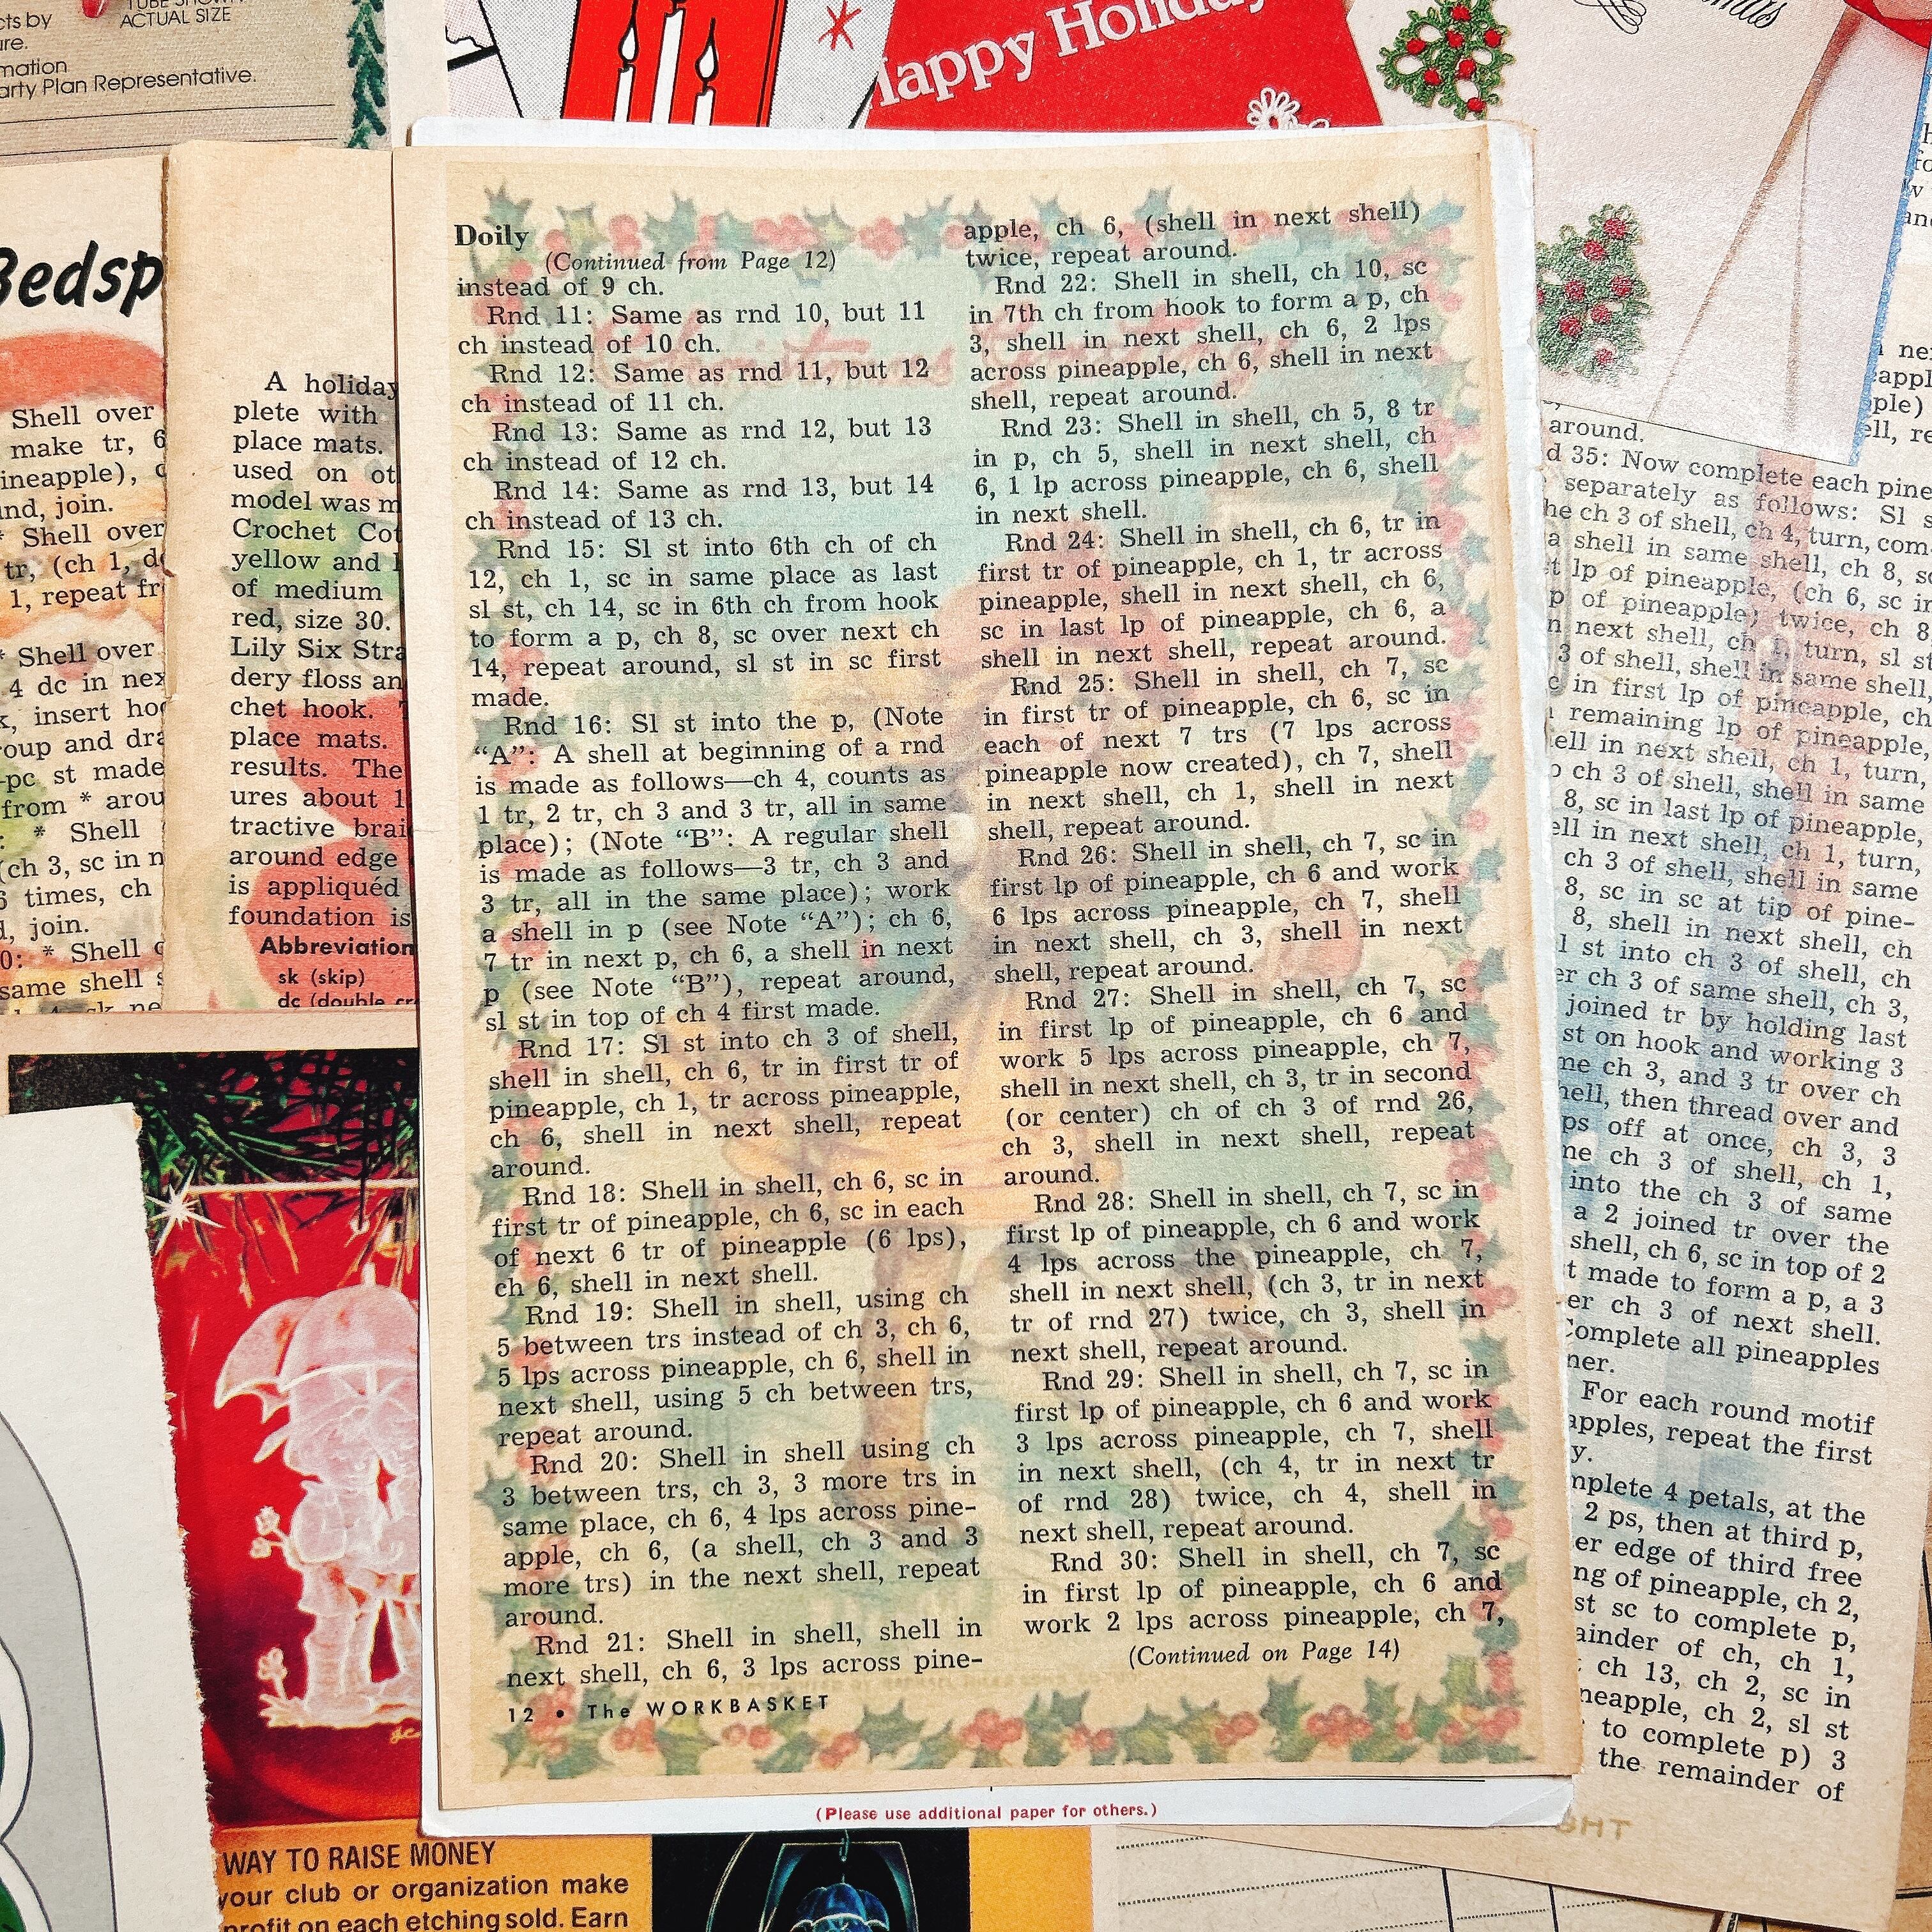 TUBE SHOWN
ACTUAL SIZE
cts by
ure.
mation
arty Plan Representative.
Happy Holiday
Bedsp
Shell over
make tr, 6
ineapple), c
nd, join.
* Shell over
tr, (ch 1, d
1, repeat fr
* Shell over
4 dc in nex
k, insert hoo
oup and dra
-pc st made
from * arou
: * Shell
(ch 3, sc in n
6 times, ch
d, join.
0: * Shell
same shell s
A holiday
plete with
place mats.
used on ot
model was m
Crochet Cot
yellow and
of medium
red, size 30.
Lily Six Stra
dery floss an
chet hook.
place mats.
results. The
ures about 1
tractive brai
around edge
is appliquéd
foundation is
Abbreviation
sk (skip)
dc (double cr
Doily
(Continued from Page 12)
instead of 9 ch.
Rnd 11: Same as rnd 10, but 11
ch instead of 10 ch.
Rnd 12: Same as rnd 11, but 12
ch instead of 11 ch.
Rnd 13: Same as rnd 12, but 13
ch instead of 12 ch.
Rnd 14: Same as rnd 13, but 14
ch instead of 13 ch.
Rnd 15: Sl st into 6th ch of ch
12, ch 1, sc in same place as last
sl st, ch 14, sc in 6th ch from hook
to form a p, ch 8, sc over next ch
14, repeat around, sl st in sc first
made.
Rnd 16: Sl st into the p, (Note
“A”: A shell at beginning of a rnd
is made as follows—ch 4, counts as
1 tr, 2 tr, ch 3 and 3 tr, all in same
place); (Note “B”: A regular shell
is made as follows—3 tr, ch 3 and
3 tr, all in the same place); work
a shell in p (see Note “A”); ch 6,
7 tr in next p, ch 6, a shell in next
p (see Note “B”), repeat around,
sl st in top of ch 4 first made.
Rnd 17: Sl st into ch 3 of shell,
shell in shell, ch 6, tr in first tr of
pineapple, ch 1, tr across pineapple,
ch 6, shell in next shell, repeat
around.
Rnd 18: Shell in shell, ch 6, sc in
first tr of pineapple, ch 6, sc in each
of next 6 tr of pineapple (6 lps),
ch 6, shell in next shell.
Rnd 19: Shell in shell, using ch
5 between trs instead of ch 3, ch 6,
5 lps across pineapple, ch 6, shell in
next shell, using 5 ch between trs,
repeat around.
Rnd 20: Shell in shell using ch
3 between trs, ch 3, 3 more trs in
same place, ch 6, 4 lps across pine-
apple, ch 6, (a shell, ch 3 and 3
more trs) in the next shell, repeat
around.
Rnd 21: Shell in shell, shell in
next shell, ch 6, 3 lps across pine-
12 • The WORKBASKET
apple, ch 6, (shell in next shell)
twice, repeat around.
Rnd 22: Shell in shell, ch 10, sc
in 7th ch from hook to form a p, ch
3, shell in next shell, ch 6, 2 lps
across pineapple, ch 6, shell in next
shell, repeat around.
Rnd 23: Shell in shell, ch 5, 8 tr
in p, ch 5, shell in next shell, ch
6, 1 lp across pineapple, ch 6, shell
in next shell.
Rnd 24: Shell in shell, ch 6, tr in
first tr of pineapple, ch 1, tr across
pineapple, shell in next shell, ch 6,
sc in last lp of pineapple, ch 6, a
shell in next shell, repeat around.
Rnd 25: Shell in shell, ch 7, sc
in first tr of pineapple, ch 6, sc in
each of next 7 trs (7 lps across
pineapple now created), ch 7, shell
in next shell, ch 1, shell in next
shell, repeat around.
Rnd 26: Shell in shell, ch 7, sc in
first lp of pineapple, ch 6 and work
6 lps across pineapple, ch 7, shell
in next shell, ch 3, shell in next
shell, repeat around.
Rnd 27: Shell in shell, ch 7, sc
in first lp of pineapple, ch 6 and
work 5 lps across pineapple, ch 7,
shell in next shell, ch 3, tr in second
(or center) ch of ch 3 of rnd 26,
ch 3, shell in next shell, repeat
around.
Rnd 28: Shell in shell, ch 7, sc in
first lp of pineapple, ch 6 and work
4 lps across the pineapple, ch 7,
shell in next shell, (ch 3, tr in next
tr of rnd 27) twice, ch 3, shell in
next shell, repeat around.
Rnd 29: Shell in shell, ch 7, sc in
first lp of pineapple, ch 6 and work
3 lps across pineapple, ch 7, shell
in next shell, (ch 4, tr in next tr
of rnd 28) twice, ch 4, shell in
next shell, repeat around.
Rnd 30: Shell in shell, ch 7, sc
in first lp of pineapple, ch 6 and
work 2 lps across pineapple, ch 7,
(Continued on Page 14)
(Please use additional paper for others.)
around.
d 35: Now complete each pine
separately as follows: Sl s
he ch 3 of shell, ch 4, turn, com
a shell in same shell, ch 8, sc
t lp of pineapple, (ch 6, sc in
p of pineapple) twice, ch 8
n next shell, ch 1, turn, sl st
3 of shell, shell in same shell,
c in first lp of pineapple, ch
remaining lp of pineapple,
ell in next shell, ch 1, turn,
o ch 3 of shell, shell in same
8, sc in last lp of pineapple,
ell in next shell, ch 1, turn,
ch 3 of shell, shell in same
8, sc in sc at tip of pine-
8, shell in next shell, ch
l st into ch 3 of shell, ch
er ch 3 of same shell, ch 3,
joined tr by holding last
st on hook and working 3
me ch 3, and 3 tr over ch
hell, then thread over and
ps off at once, ch 3, 3
me ch 3 of shell, ch 1,
into the ch 3 of same
a 2 joined tr over the
shell, ch 6, sc in top of 2
t made to form a p, a 3
er ch 3 of next shell.
Complete all pineapples
ner.
For each round motif
apples, repeat the first
y.
mplete 4 petals, at the
2 ps, then at third p,
er edge of third free
ng of pineapple, ch 2,
st sc to complete p,
ainder of ch, ch 1,
ch 13, ch 2, sc in
neapple, ch 2, sl st
to complete p) 3
the remainder of
GHT
WAY TO RAISE MONEY
your club or organization make
profit on each etching sold. Earn